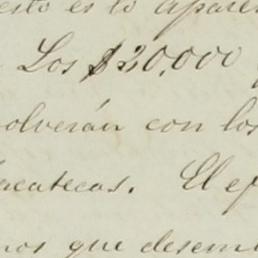 esto es lo aparen
Los $20,000
volverán con los
Zacatecas. El ef
nos que desem